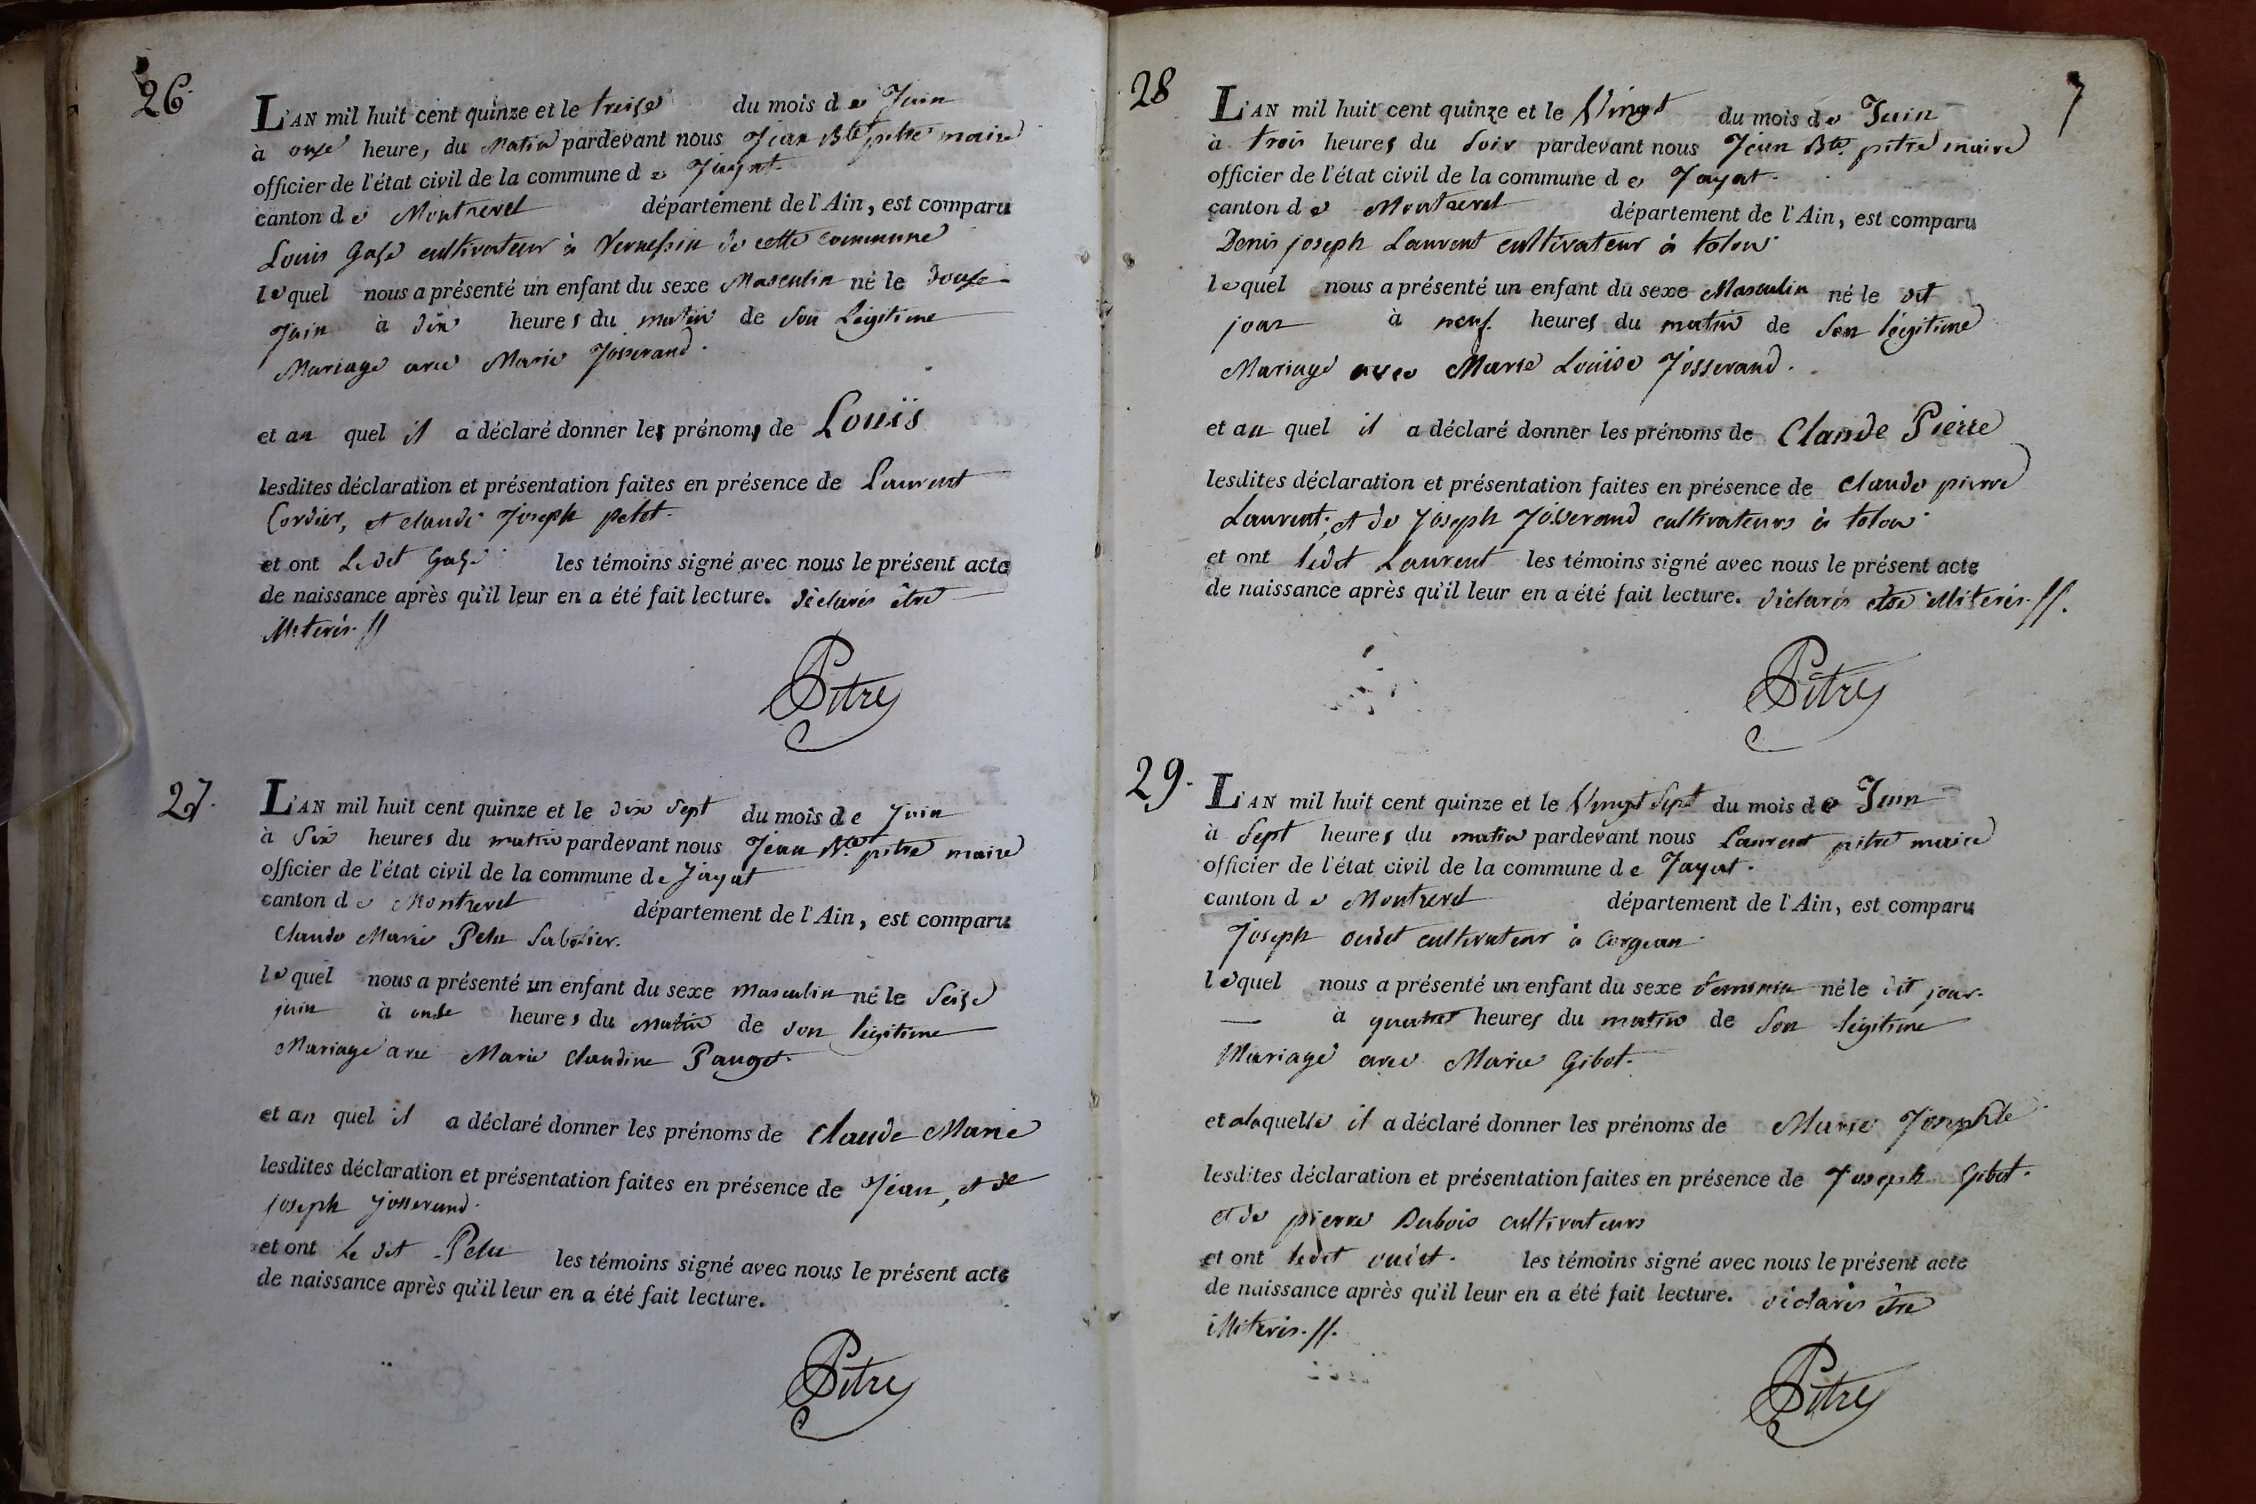 26.
L'AN mil huit cent quinze et le treize du mois de Juin
à onze heure, du Matin pardevant nous Jean Bte pitre maire
officier de l'état civil de la commune de Jayat.
canton de Montrevel département de l'Ain, est comparu
Louis Gase cultivateur à Vernessin de cette commune
lequel nous a présenté un enfant du sexe Masculin né le douze
Juin à dix heures du matin de son Légitime
Mariage avec Marie Josserand.
et au quel il a déclaré donner les prénoms de Louïs
lesdites déclaration et présentation faites en présence de Laurent
Cordier, et claude Joseph petet.
et ont Ledit Gase les témoins signé avec nous le présent acte
de naissance après qu'il leur en a été fait lecture. déclarés être
illiterés. //
Pitre
27.
L'AN mil huit cent quinze et le dix sept du mois de Juin
à Six heures du matin pardevant nous Jean Bte pitre maire
officier de l'état civil de la commune de Jayat
canton de Montrevel département de l'Ain, est comparu
Claude Marie Pelu Sabotier.
lequel nous a présenté un enfant du sexe masculin né le Seize
juin à onze heures du matin de son légitime
Mariage avec Marie Claudine Pauget.
et au quel il a déclaré donner les prénoms de Claude Marie
lesdites déclaration et présentation faites en présence de Jean, et de
joseph Josserand.
et ont Le dit Pelu les témoins signé avec nous le présent acte
de naissance après qu'il leur en a été fait lecture.
Pitre
7
28
L'AN mil huit cent quinze et le Vingt du mois de Juin
à trois heures du Soir pardevant nous Jean Bte. pitre maire
officier de l'état civil de la commune de Jayat.
canton de Montrevel département de l'Ain, est comparu
Denis joseph Laurent cultivateur à tolou
lequel nous a présenté un enfant du sexe Masculin né le dit
jour à neuf heures du matin de Son légitime
Mariage avec Marie Louise Josserand.
et au quel il a déclaré donner les prénoms de Claude Pierre
lesdites déclaration et présentation faites en présence de claude pierre
Laurent, et de Joseph Josserand cultivateurs à tolou
et ont ledit Laurent les témoins signé avec nous le présent acte
de naissance après qu'il leur en a été fait lecture. déclarés etre illiterés. //.
Pitre
29.
L'AN mil huit cent quinze et le Vingt Sept du mois de Juin
à Sept heures du matin pardevant nous Laurent pitre maire
officier de l'état civil de la commune de Jayat.
canton de Montrevel département de l'Ain, est comparu
Joseph oudet cultivateur à Corgean
lequel nous a présenté un enfant du sexe feminin né le dit jour.
à quatre heures du matin de Son légitime
Mariage avec Marie Gibot.
et alaquelle il a déclaré donner les prénoms de Marie Josephte
lesdites déclaration et présentation faites en présence de Joseph Gibot.
et de pierre Dubois cultivateurs
et ont ledit oudet. les témoins signé avec nous le présent acte
de naissance après qu'il leur en a été fait lecture. déclarés être
illiterés. //.
Pitre